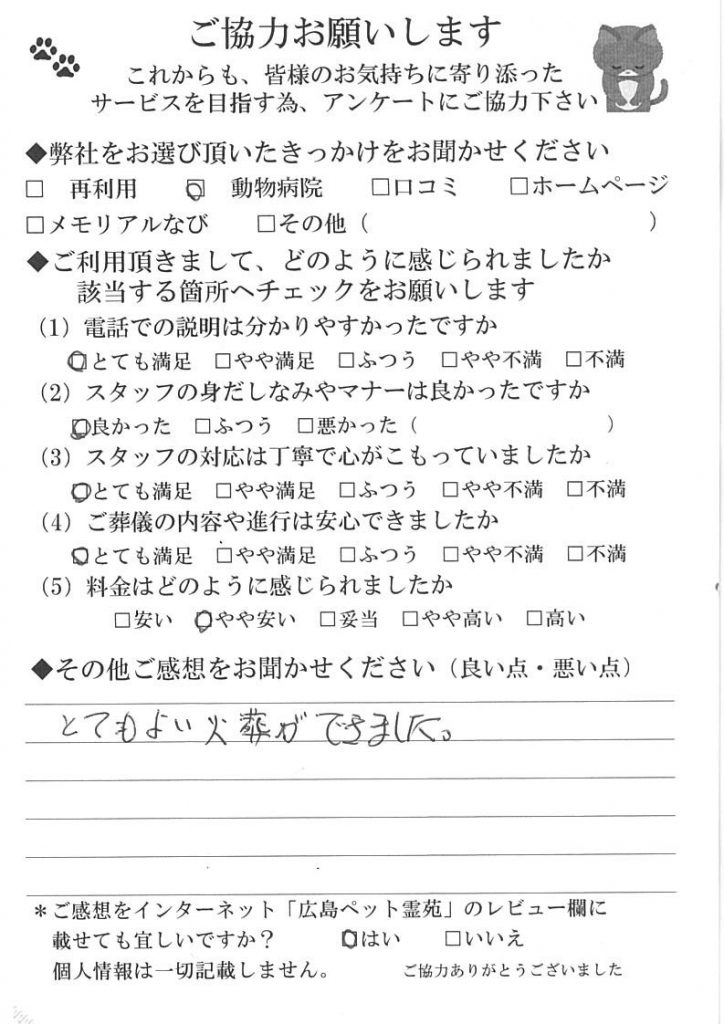 ご協力お願いします
これからも、皆様のお気持ちに寄り添った
サービスを目指す為、アンケートにご協力下さい
◆弊社をお選び頂いたきっかけをお聞かせください
□ 再利用 □ 動物病院 □口コミ □ホームページ
□メモリアルなび □その他（ ）
◆ご利用頂きまして、どのように感じられましたか
該当する箇所へチェックをお願いします
（1）電話での説明は分かりやすかったですか
□とても満足 □やや満足 □ふつう □やや不満 □不満
（2）スタッフの身だしなみやマナーは良かったですか
□良かった □ふつう □悪かった（ ）
（3）スタッフの対応は丁寧で心がこもっていましたか
□とても満足 □やや満足 □ふつう □やや不満 □不満
（4）ご葬儀の内容や進行は安心できましたか
□とても満足 □やや満足 □ふつう □やや不満 □不満
（5）料金はどのように感じられましたか
□安い □やや安い □妥当 □やや高い □高い
◆その他ご感想をお聞かせください（良い点・悪い点）
とてもよい火葬ができました。
＊ご感想をインターネット「広島ペット霊苑」のレビュー欄に
載せても宜しいですか？ □はい □いいえ
個人情報は一切記載しません。 ご協力ありがとうございました